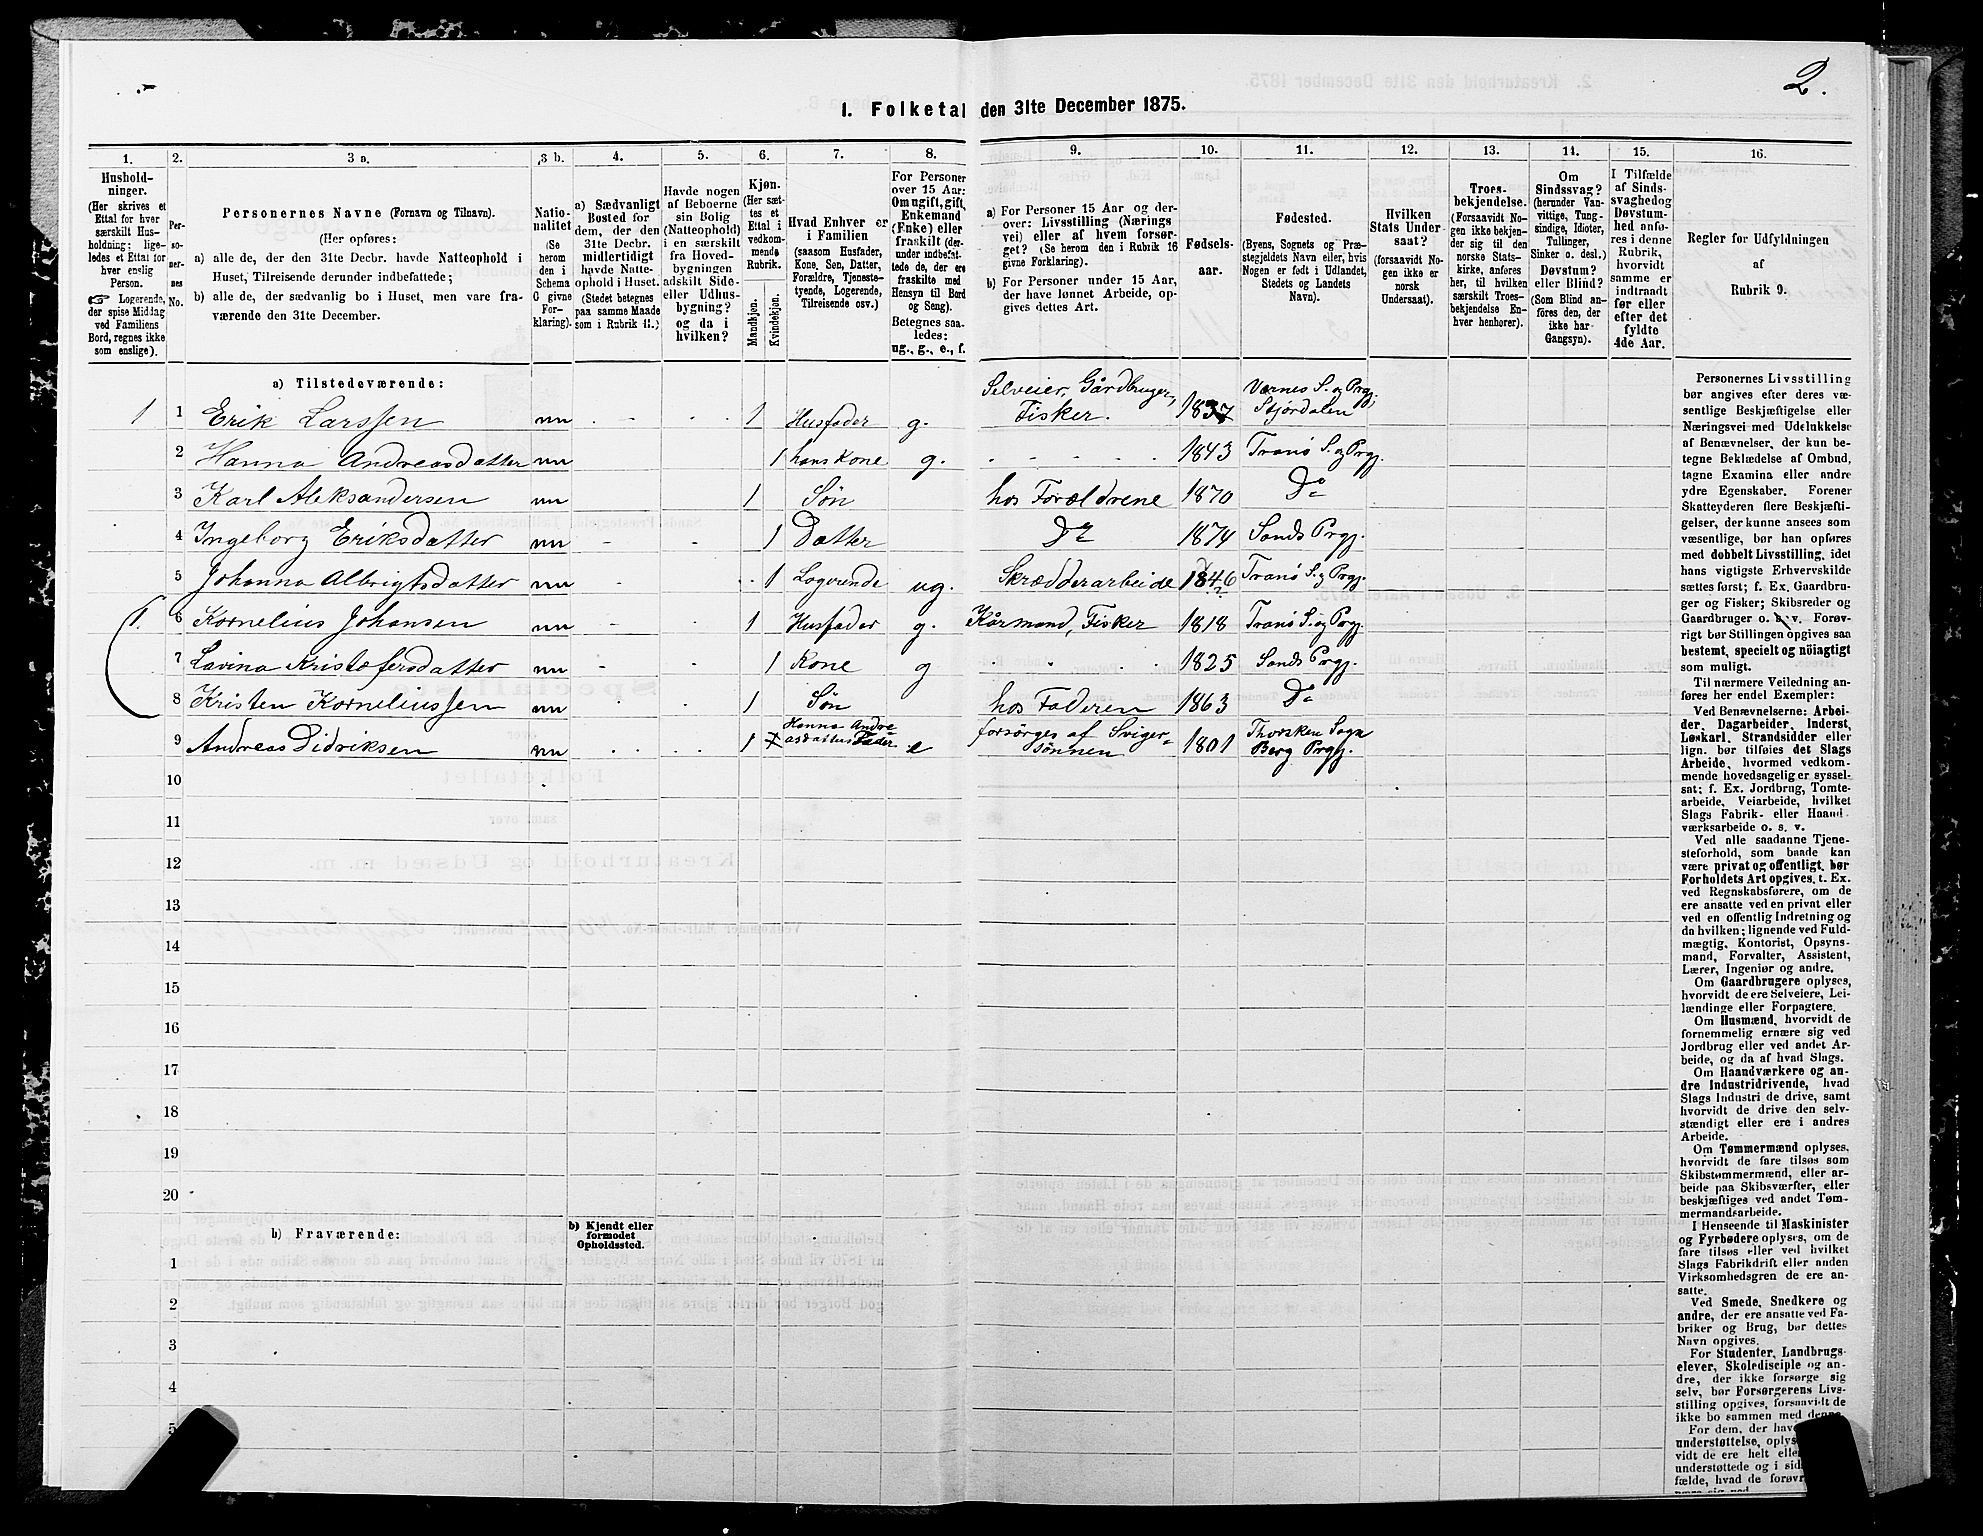 2.
I. Folketal den 31te December 1875.
1. 2. 3 a. 3 b. 4. 5. 6. 7. 8. 9. 10. 11. 12. 13. 14. 15. 16.
Hushold-
ninger.
(Her skrives et
Ettal for hver
særskilt Hus-
holdning; lige-
ledes et Ettal for
hver enslig
Person.
☞ Logerende,
der spise Middag
ved Familiens
Bord, regnes ikke
som enslige).
Per-
so-
ner-
nes
No.
Personernes Navne (Fornavn og Tilnavn).
(Her opføres:
a) alle de, der den 31te Decbr. havde Natteophold i
Huset, Tilreisende derunder indbefattede;
b) alle de, der sædvanlig bo i Huset, men vare fra-
værende den 31te December.
Natio-
nalitet
(Se
herom
den i
Schema
C givne
For-
klaring).
a) Sædvanligt
Bosted for
dem, der den
31te Decbr.
midlertidigt
havde Natte-
ophold i Huset.
(Stedet betegnes
paa samme Maade
som i Rubrik 11.)
Havde nogen
af Beboerne
sin Bolig
(Natteophold)
i en særskilt
fra Hoved-
bygningen
adskilt Side-
eller Udhus-
bygning?
og da i
hvilken?
Kjøn.
(Her sæt-
tes et
Ettal i
vedkom-
mende
Rubrik.
Mandkjøn.
Kvindekjøn.
Hvad Enhver er
i Familien
(saasom Husfader,
Kone, Søn, Datter,
Forældre, Tjeneste-
tyende, Logerende,
Tilreisende osv.)
For Personer
over 15 Aar:
Om ugift, gift,
Enkemand
(Enke) eller
fraskilt (der-
under indbefat-
tede de, der ere
fraskilte med
Hensyn til Bord
og Seng).
Betegnes saa-
ledes:
ug., g., e., f.
a) For Personer 15 Aar og der-
over: Livsstilling (Nærings-
vei) eller af hvem forsør-
get? (Se herom den i Rubrik 16
givne Forklaring).
b) For Personer under 15 Aar,
der have lønnet Arbeide, op-
gives dettes Art.
Fødsels-
aar.
Fødested.
(Byens, Sognets og Præ-
stegjeldets Navn eller, hvis
Nogen er født i Udlandet,
Stedets og Landets
Navn).
Hvilken
Stats Under-
saat?
(forsaavidt No-
gen ikke er
norsk
Undersaat).
Troes-
bekjendelse.
(Forsaavidt No-
gen ikke bekjen-
der sig til den
norske Stats-
kirke, anføres
her, til hvilken
særskilt Troes-
bekjendelse En-
hver henhorer).
Om
Sindssvag?
(herunder Van-
vittige, Tung-
sindige, Idioter,
Tullinger,
Sinker o. desl.)
Døvstum?
eller Blind?
(Som Blind an-
føres den, der
ikke har
Gangsyn).
I Tilfælde
af Sinds-
svaghedog
Døvstum-
hed anfø-
res i denne
Rubrik,
hvorvidt
samme er
indtraadt
før eller
efter det
fyldte
4de Aar.
Regler for Udfyldningen
af
Rubrik 9.
a) Tilstedeværende:
1 1 Erik Larssen nn 1 Husfader g. Selveier, Gårdbruger, Fisker. 1837 Værnes S. og Prgj. Stjørdalen
2 Hanna Andreasdatter nn 1 hans Kone g. 1843 Tranø S. og Prgj.
3 Karl Aleksandersen nn 1 Søn hos Forældrene 1870 Do
4 Ingeborg Eriksdatter nn 1 Datter Do 1874 Sands Prgj.
5 Johanna Albrigtsdatter nn 1 Logerende ug. Skrædderarbeide 1846 Tranø S. og Prgj.
1. 6 Kornelius Johansen nn 1 Husfader g. Kårmand, Fisker 1818 Tranø S. og Prgj.
7 Lavina Kristofersdatter nn 1 Kone g 1825 Sands Prgj.
8 Kristen Korneliussen nn 1 Søn hos Faderen 1863 Do
9 Andreas Didriksen nn 1 Hanna Andreasdatters Fader e forsørges af Svigersønnen 1801 Thorsken Sogn Berg Prgj.
10
11
12
13
14
15
16
17
18
19
20
b) Fraværende:
b) Kjendt eller
formodet
Opholdssted.
1
2
3
4
5
Personernes Livsstilling
bør angives efter deres væ-
sentlige Beskjæftigelse eller
Næringsvei med Udelukkelse
af Benævnelser, der kun be-
tegne Beklædelse af Ombud,
tagne Examina eller andre
ydre Egenskaber. Forener
Skatteyderen flere Beskjæfti-
gelser, der kunne ansees som
væsentlige, bør han opføres
med dobbelt Livsstilling, idet
hans vigtigste Erhvervskilde
sættes først; f. Ex. Gaardbru-
ger og Fisker; Skibsreder og
Gaardbruger o. s. v. Forøv-
rigt bør Stillingen opgives saa
bestemt, specielt og nøiagtigt
som muligt.
Til nærmere Veiledning an-
føres her endel Exempler:
Ved Benævnelserne: Arbei-
der, Dagarbeider, Inderst,
Løskarl, Strandsidder eller
lign. bør tilføies det Slags
Arbeide, hvormed vedkom-
mende hovedsagelig er syssel-
sat; f. Ex. Jordbrug, Tomte-
arbeide, Veiarbeide, hvilket
Slags Fabrik- eller Haand-
værksarbeide o. s. v.
Ved alle saadanne Tjene-
steforhold, som baade kan
være privat og offentligt, bør
Forholdets Art opgives, t. Ex.
ved Regnskabsførere, om de
ere ansatte ved en privat eller
ved en offentlig Indretning og
da hvilken; lignende ved Fuld-
mægtig, Kontorist, Opsyns-
mand, Forvalter, Assistent,
Lærer, Ingeniør og andre.
Om Gaardbrugere oplyses,
hvorvidt de ere Selveiere, Lei-
lændinge eller Forpagtere.
Om Husmænd, hvorvidt de
fornemmelig ernære sig ved
Jordbrug eller ved andet Ar-
beide, og da af hvad Slags.
Om Haandværkere og an-
dre Industridrivende, hvad
Slags Industri de drive, samt
hvorvidt de drive den selv-
stændigt eller ere i andres
Arbeide.
Om Tømmermænd oplyses,
hvorvidt de fare tilsøs som
Skibstømmermænd, eller ar-
beide paa Skibsværfter, eller
beskjæftiges ved andet Tøm-
mermandsarbeide.
I Henseende til Maskinister
og Fyrbødere oplyses, om de
fare tilsøs eller ved hvilket
Slags Fabrikdrift eller anden
Virksomhedsgren de ere an-
satte.
Ved Smede, Snedkere og
andre, der ere ansatte ved Fa-
briker og Brug, bør dettes
Navn opgives.
For Studenter, Landbrugs-
elever, Skoledisciple og an-
dre, der ikke forsørge sig
selv, bør Forsørgerens Livs-
stilling opgives, forsaavidt de
ikke bo sammen med denne.
For dem, der have
understøttelse, oplys
vidt de ere helt elle
understøttede og i sid
fælde, hvad de forøv